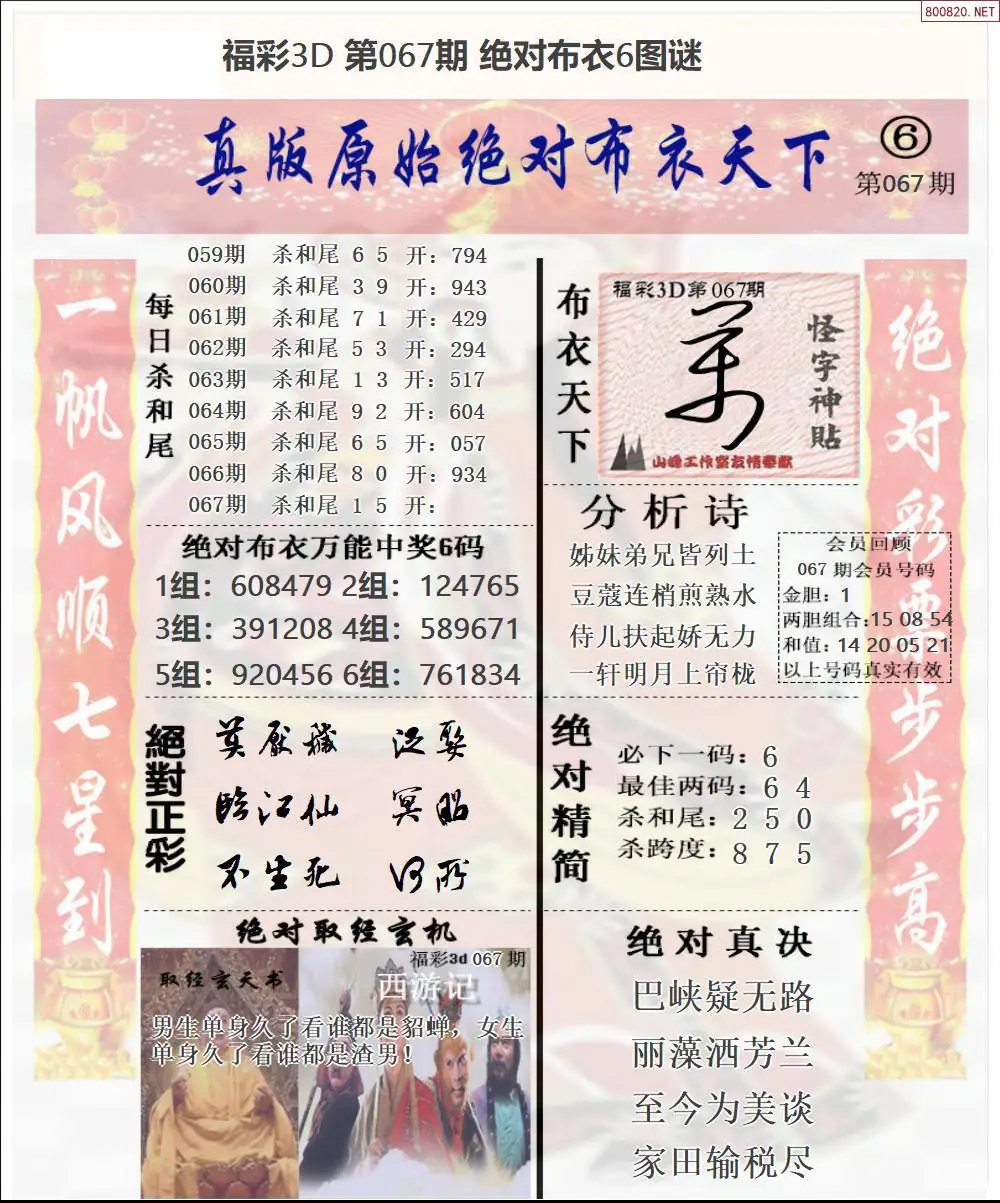 800820.NET
福彩3D 第067期 绝对布衣6图谜
真版原始绝对布衣天下
⑥
第067期
一帆风顺七星到
每日杀和尾
059期 杀和尾 6 5 开：794
060期 杀和尾 3 9 开：943
061期 杀和尾 7 1 开：429
062期 杀和尾 5 3 开：294
063期 杀和尾 1 3 开：517
064期 杀和尾 9 2 开：604
065期 杀和尾 6 5 开：057
066期 杀和尾 8 0 开：934
067期 杀和尾 1 5 开：
绝对布衣万能中奖6码
1组：608479 2组：124765
3组：391208 4组：589671
5组：920456 6组：761834
絕對正彩
臨江仙
不生死 何所
绝对取经玄机
福彩3d 067期
取经玄天书
西游记
男生单身久了看谁都是貂蝉，女生
单身久了看谁都是渣男！
布衣天下
福彩3D第067期
怪字神贴
山峰工作室友情奉献
分析诗
姊妹弟兄皆列土
豆蔻连梢煎熟水
侍儿扶起娇无力
一轩明月上帘栊
会员回顾
067期会员号码
金胆：1
两胆组合:15 08 54
和值：14 20 05 21
以上号码真实有效
绝对精简
必下一码：6
最佳两码：6 4
杀和尾：2 5 0
杀跨度：8 7 5
绝对真决
巴峡疑无路
丽藻洒芳兰
至今为美谈
家田输税尽
绝对彩票步步高